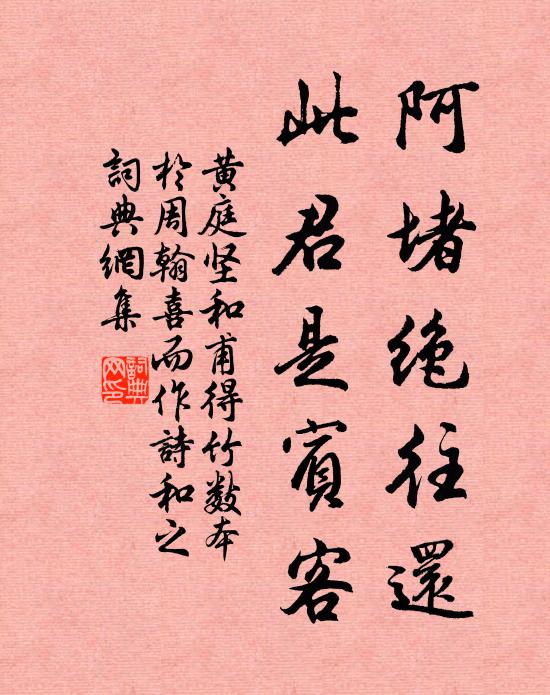 阿堵絶往還
此君是賓客
黄庭坚和甫得竹数本
於周翰喜而作詩和之
詞典網集
詞典网印